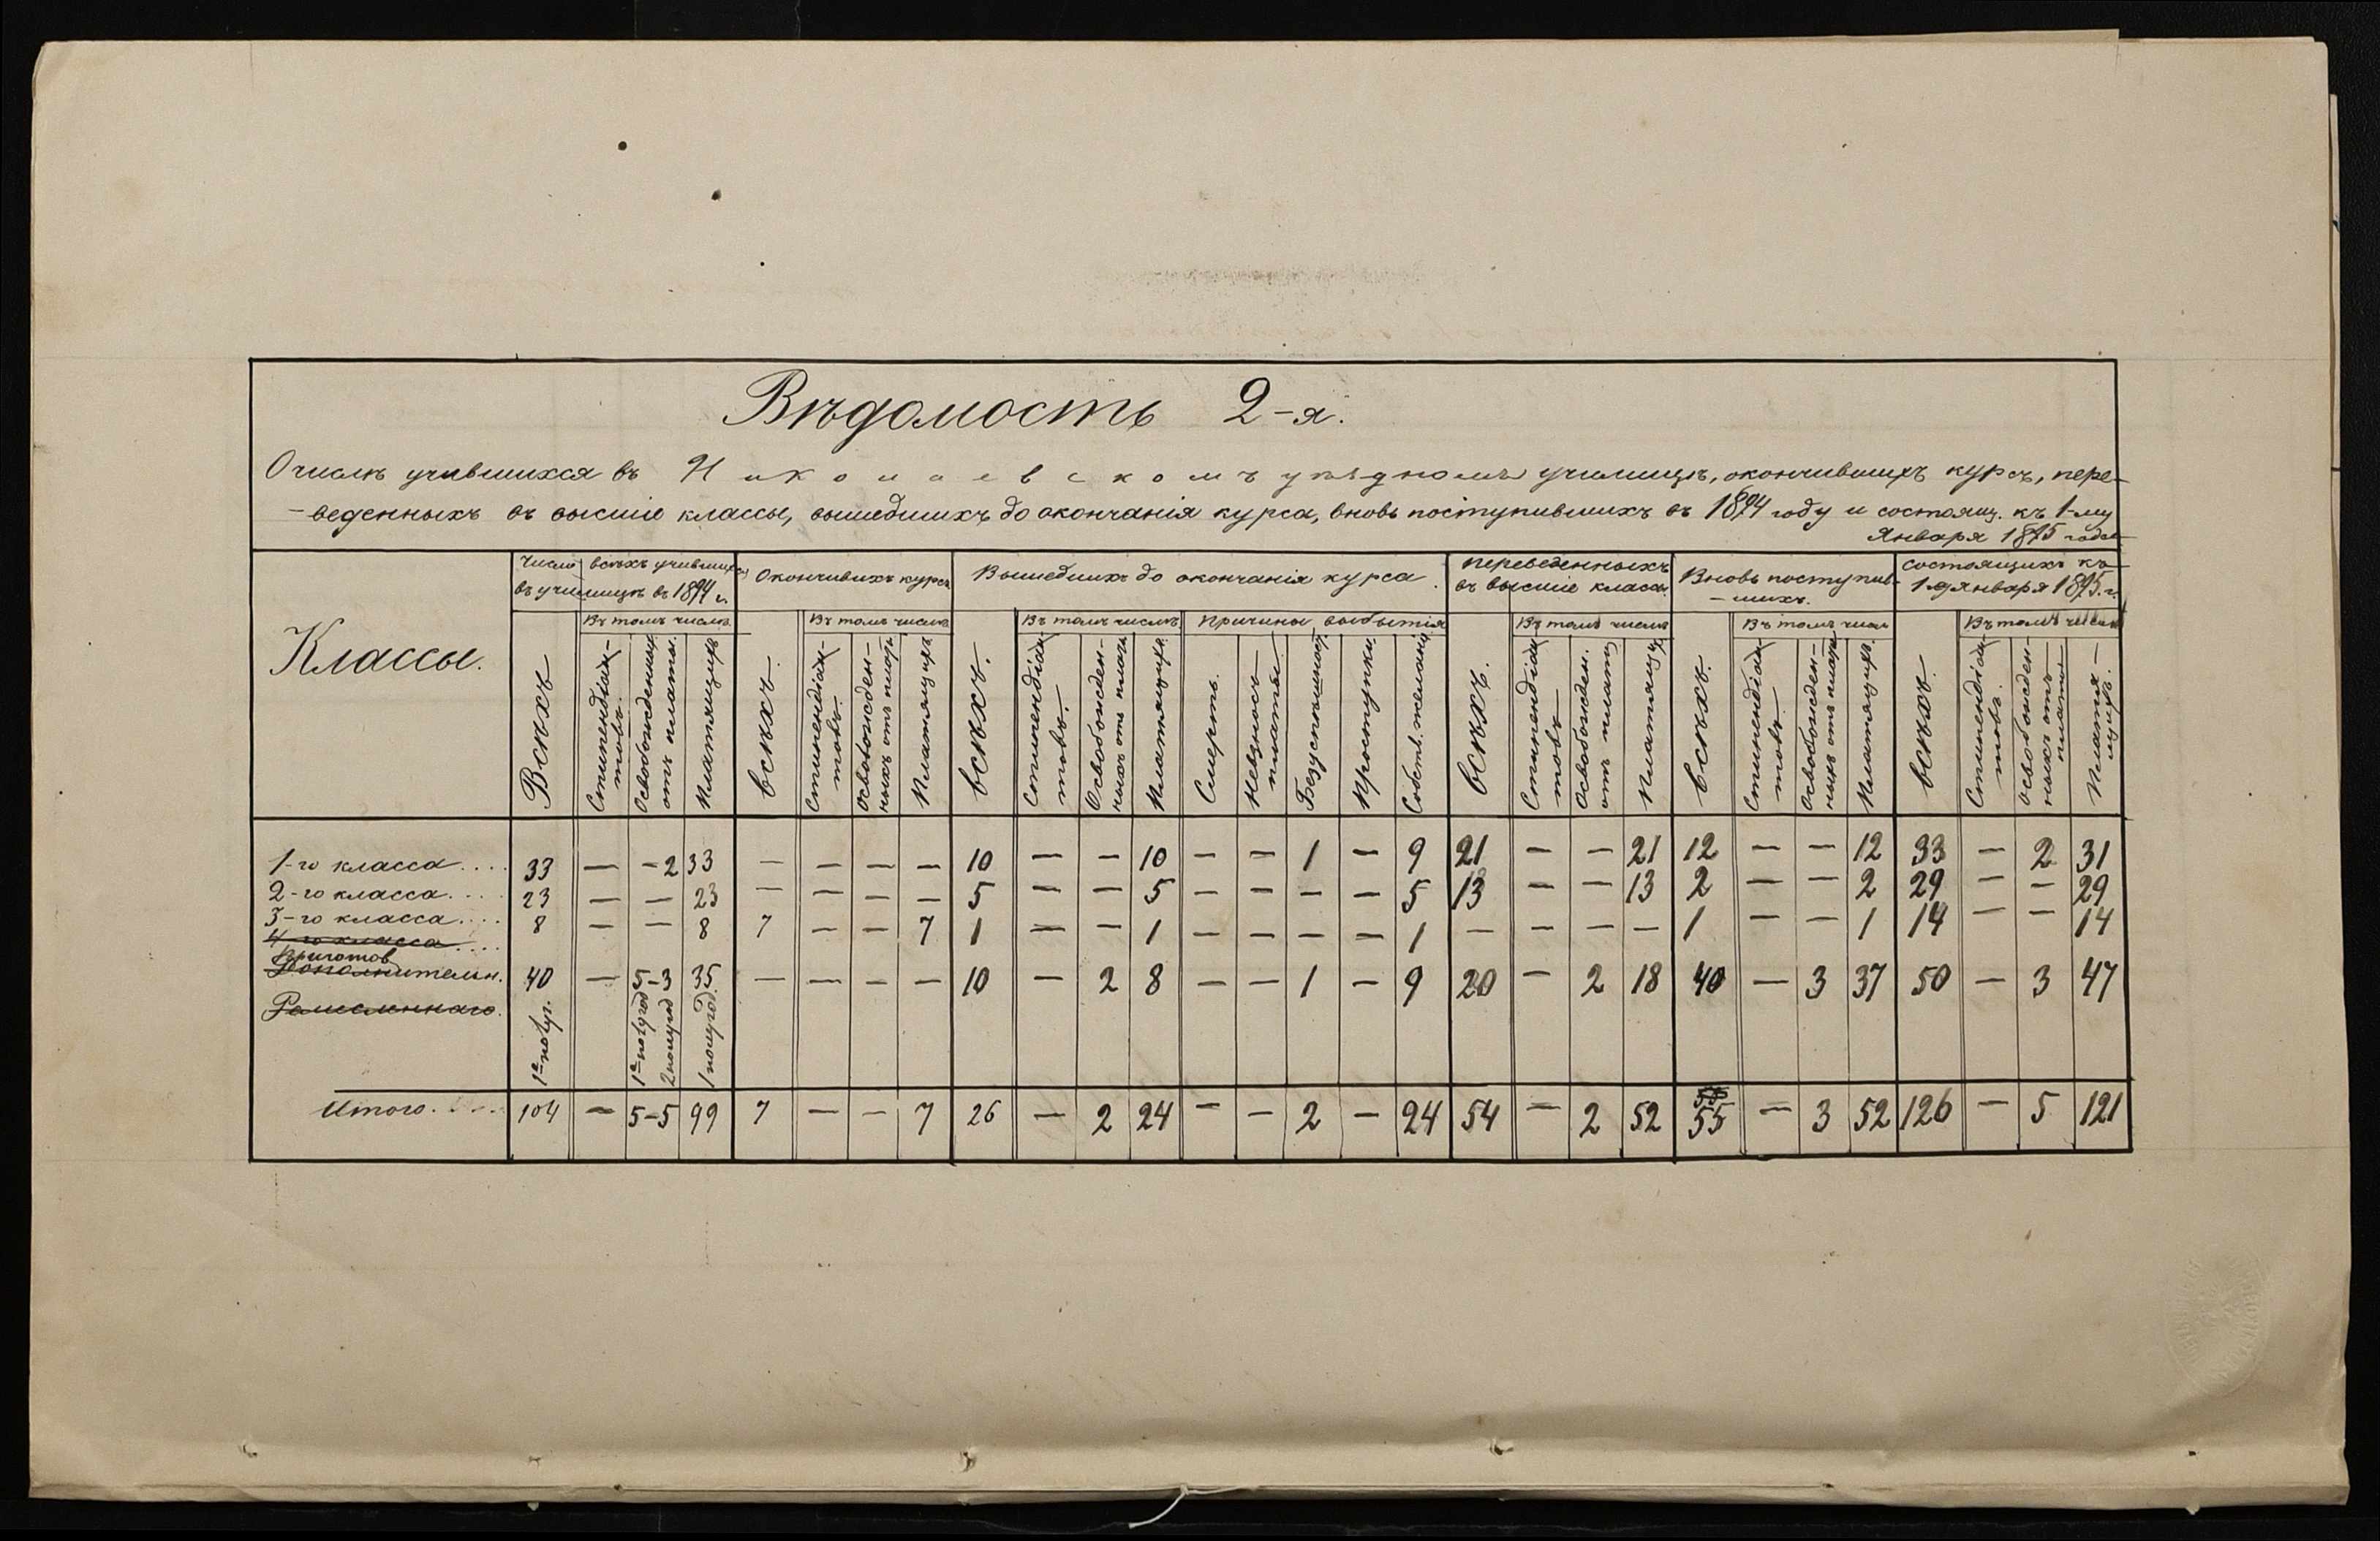 Вѣдомость 2-я.
О числѣ учившихся въ Николаевскомъ уѣздномъ училищѣ, окончившихъ курсъ, пере-
-веденныхъ въ высшіе классы, вышедшихъ до окончанія курса, вновь поступившихъ въ 1894 году и состоящ. къ 1-му
Января 1895 года
Классы.
Число всѣхъ учившихся
въ училищѣ въ 1894 г.
Окончившихъ курсъ
Вышедшихъ до окончанія курса.
Переведенныхъ
въ высшіе классы.
Вновь поступив-
-шихъ.
Состоящихъ къ
1-е Января 1895. г.
Въ томъ числѣ
Въ томъ числѣ
Въ томъ числѣ
Причины выбытія
Въ томъ числѣ
Въ томъ числѣ
Въ томъ числѣ
Всѣхъ
Стипендіан-
товъ.
Освобожденныхъ
отъ платы.
Платящихъ
Всѣхъ.
Стипендіан-
товъ.
Освобожден-
ныхъ отъ платы
Платящихъ
Всѣхъ.
Стипендіан
товъ.
Освобожден-
ныхъ отъ платы
Платящихъ
Смерть.
Невзносъ
платы.
Безуспѣшност
Проступки.
Собств. желанію
Всѣхъ.
Стипендіан
товъ
Освобожден.
отъ платы
Платящихъ
Всѣхъ.
Стипендіан
товъ
Освобожден-
ныхъ отъ платы
Платящихъ.
Всѣхъ.
Стипендіан
товъ.
Освобожден-
ныхъ отъ
платы
Платя-
щихъ.
1-го класса.... 33 — — 2 33 — — — — 10 — — 10 — — 1 — 9 21 — — 21 12 — — 12 33 — 2 31
2-го класса.... 23 — — 23 — — — — 5 — — 5 — — — — 5 13 — — 13 2 — — 2 29 — — 29
3-го класса.... 8 — — 8 7 — — 7 1 — — 1 — — — — 1 — — — — 1 — — 1 14 — — 14
4-го класса....
Приготов
Дополнительн. 40 — 5-3 35 — — — — 10 — 2 8 — — 1 — 9 20 — 2 18 40 — 3 37 50 — 3 47
Ремесленнаго.
1е полуг.
1е полугод
2 полугод
1 полугод.
Итого..... 104 — 5-5 99 7 — — 7 26 — 2 24 — — 2 — 24 54 — 2 52 55 — 3 52 126 — 5 121